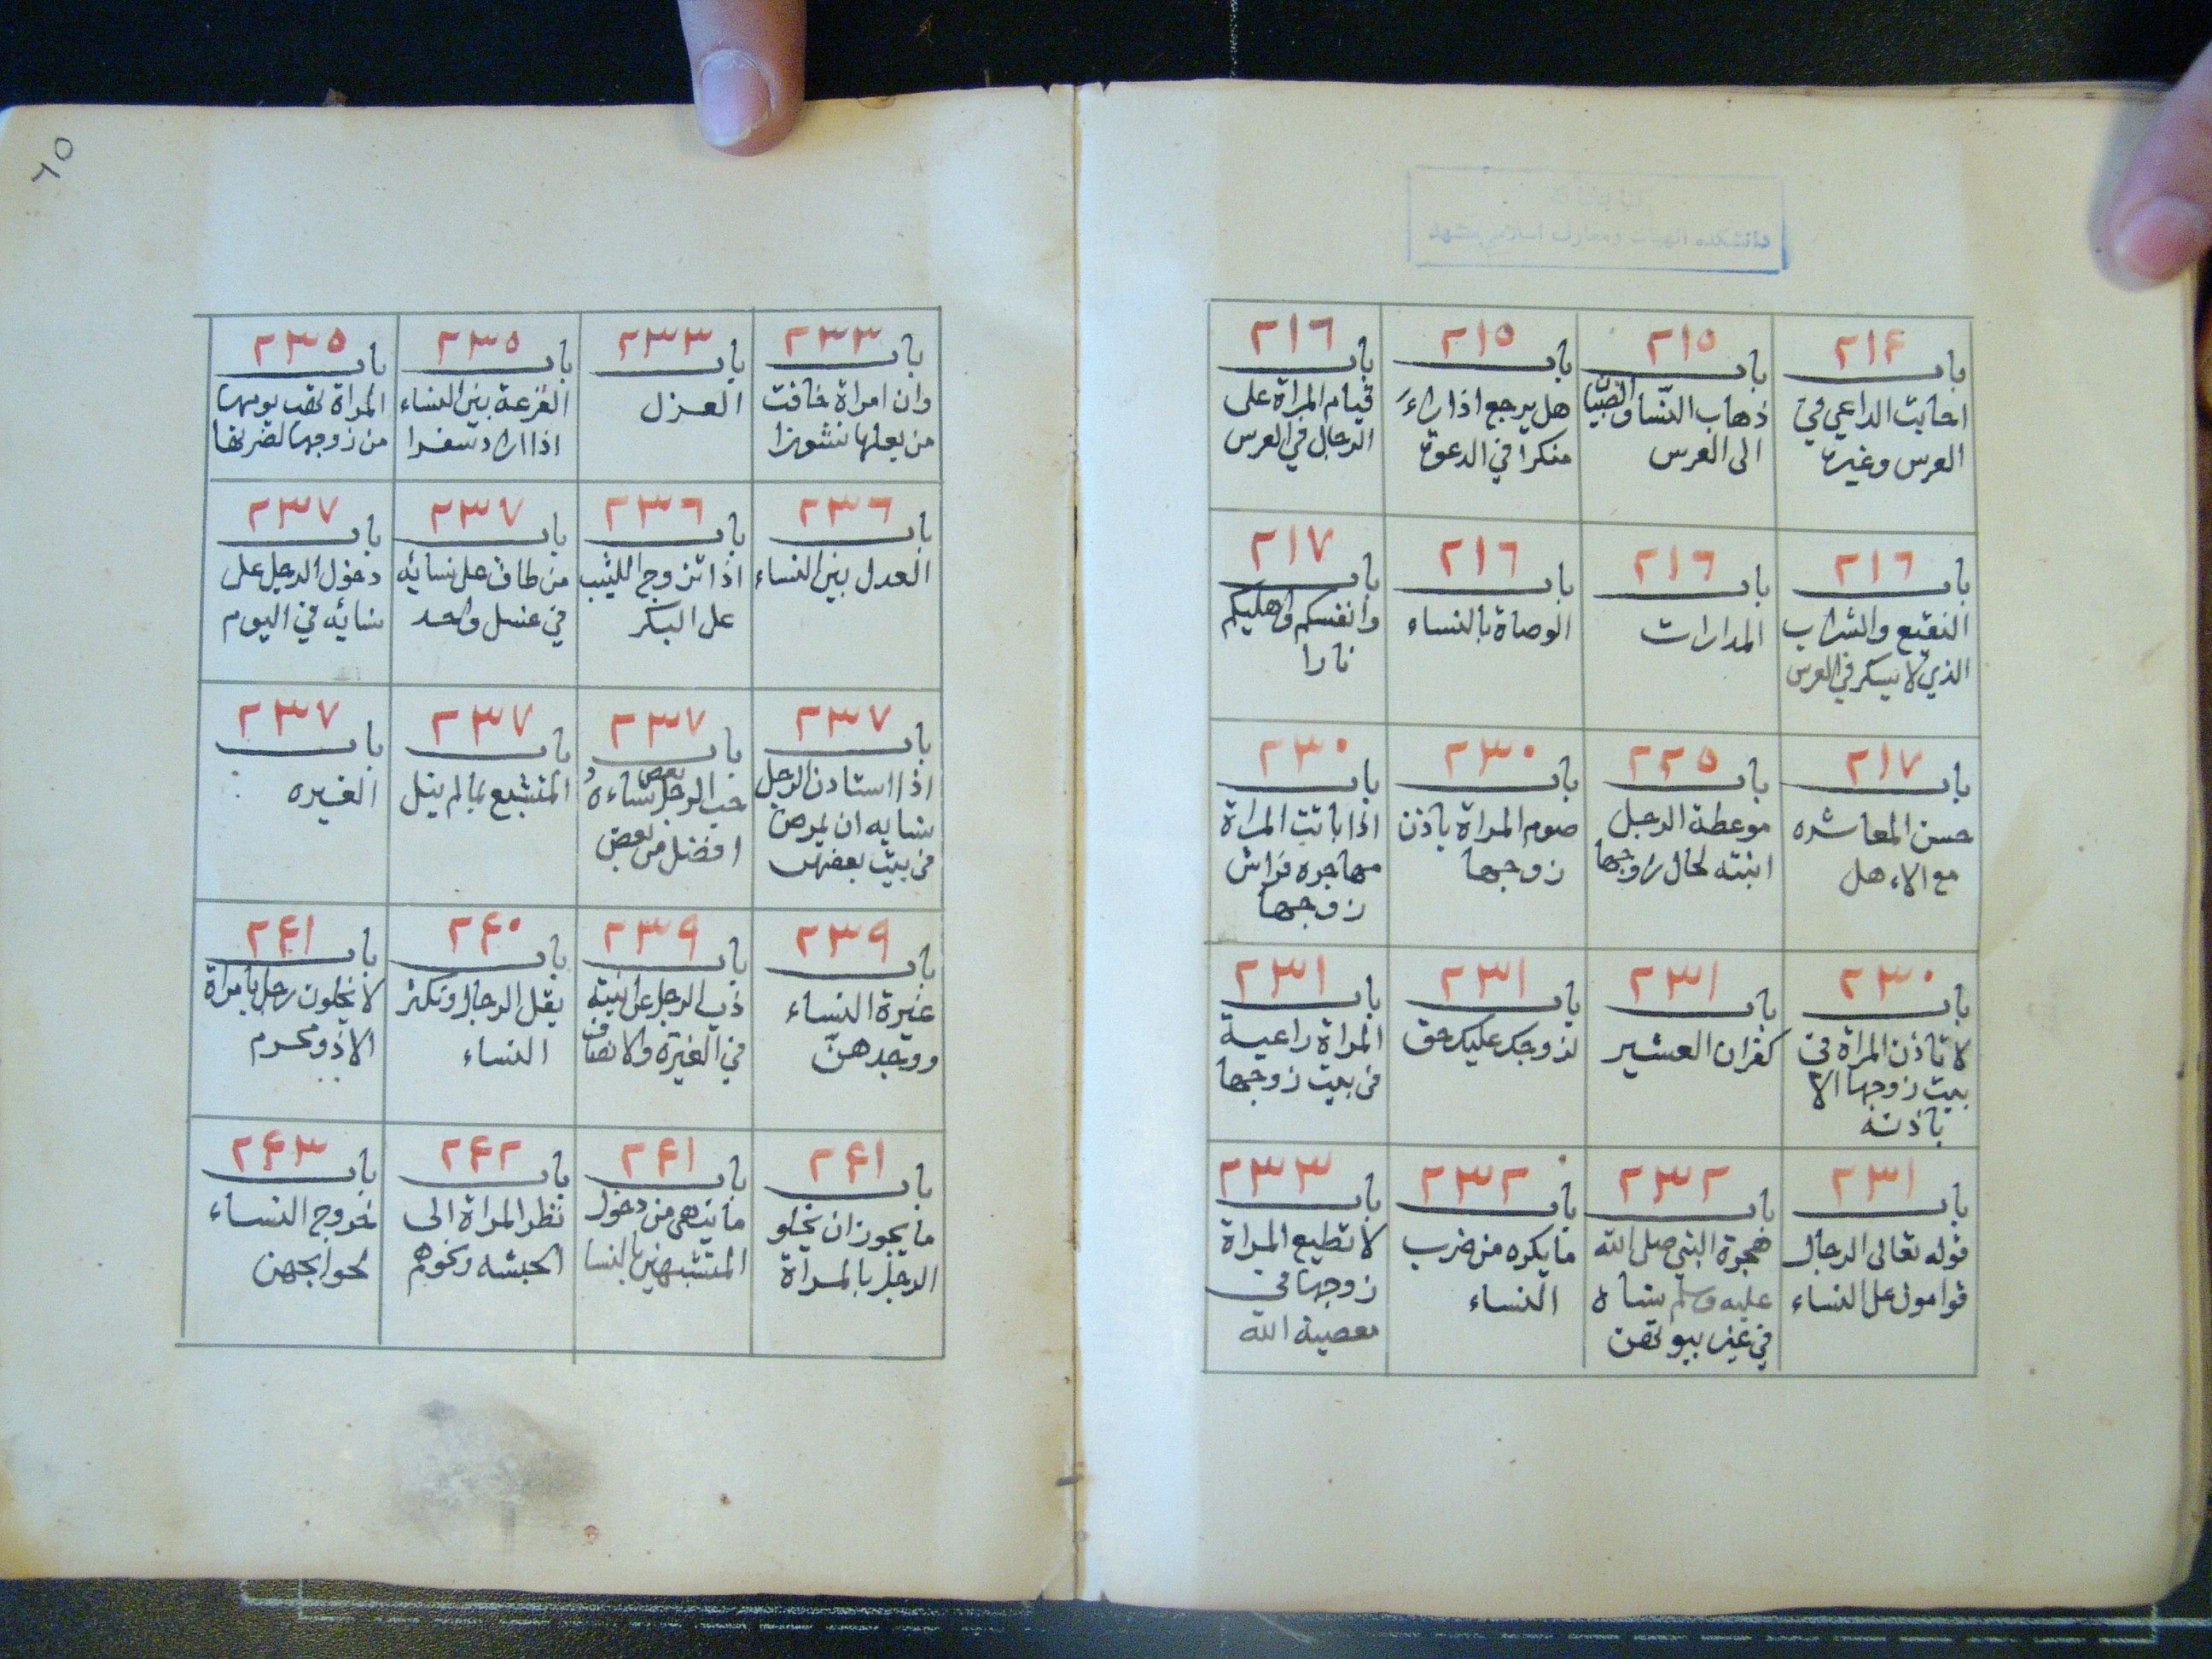 ٢١٤
باب
اجابت الداعي في
العرس وغيره
٢١٥
باب
ذهاب النسا والصبيان
الى العرس
٢١٥
باب
هل يرجع اذا راء
منكرا في الدعوة
٢١٦
باب
قيام المراة على
الرجال في العرس
٢١٦
باب
النقيع والشراب
الذي لا يسكر في العرس
٢١٦
باب
المدارات
٢١٦
باب
الوصاة بالنساء
٢١٧
باب
وانفسكم واهليكم
نارا
٢١٧
باب
حسن المعاشره
مع الاهل
٢٢٥
باب
موعطة الرجل
ابنته لحال زوجها
٢٣٠
باب
صوم المراة باذن
زوجها
٢٣٠
باب
اذا باتت المراة
مهاجره فراش
زوجها
٢٣٠
باب
لا تاذن المراة في
بيت زوجها الا
باذنه
٢٣١
باب
كفران العشير
٢٣١
باب
لزوجك عليك حق
٢٣١
باب
المراة راعية
في بيت زوجها
٢٣١
باب
قوله تعالى الرجال
قوامون على النساء
٢٣٢
باب
هجرة النبي صلى الله
عليه وسلم نساه
في غير بيوتهن
٢٣٢
باب
ما يكره من ضرب
النساء
٢٣٣
باب
لا تطيع المراة
زوجها في
معصية الله
٢٣٣
باب
وان امراة خافت
من بعلها نشوزا
٢٣٣
باب
العزل
٢٣٥
باب
القرعة بين النساء
اذا اراد سفرا
٢٣٥
باب
المراة تهب يومها
من زوجها لضرتها
٢٣٦
باب
العدل بين النساء
٢٣٦
باب
اذا تزوج الثيب
على البكر
٢٣٧
باب
من طاف على نسائه
في غسل واحد
٢٣٧
باب
دخول الرجل على
نسائه في اليوم
٢٣٧
باب
اذا استاذن الرجل
نسايه ان يمرض
في بيت بعضهن
٢٣٧
باب
حب الرجل بعض نساءه
افضل من بعض
٢٣٧
باب
المتشبع بما لم ينل
٢٣٧
باب
الغيره
٢٣٩
باب
غيرة النساء
ووجدهن
٢٣٩
باب
ذب الرجل عن ابنته
في الغيرة والانصاف
٢٤٠
باب
يقل الرجال وتكثر
النساء
٢٤١
باب
لا يخلون رجل بامراة
الا ذو محرم
٢٤١
باب
ما يجوز ان يخلو
الرجل بالمراة
٢٤١
باب
ما ينهى من دخول
المتشبهين بالنسا
٢٤٢
باب
نظر المراة الى
الحبشه ونحوهم
٢٤٣
باب
خروج النساء
لحوايجهن
٦٥